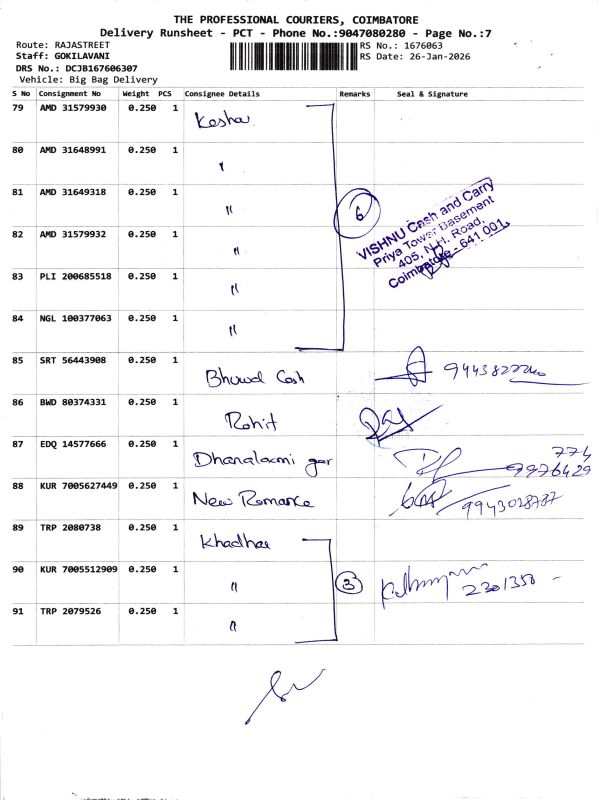 THE PROFESSIONAL COURIERS, COIMBATORE
Delivery Runsheet - PCT - Phone No.:9047080280 - Page No.:7
Route: RAJASTREET
RS No.: 1676063
Staff: GOKILAVANI
RS Date: 26-Jan-2026
DRS No.: DCJB167606307
Vehicle: Big Bag Delivery
S No Consignment No Weight PCS Consignee Details Remarks Seal & Signature
79 AMD 31579930 0.250 1
80 AMD 31648991 0.250 1 "
81 AMD 31649318 0.250 1 "
6
VISHNU Cash and Carry
Priya Tower Basement
405, N.H. Road,
Coimbatore - 641 001.
82 AMD 31579932 0.250 1 "
83 PLI 200685518 0.250 1 "
84 NGL 100377063 0.250 1 "
85 SRT 56443908 0.250 1
86 BWD 80374331 0.250 1 Rohit
87 EDQ 14577666 0.250 1 Dhanalaxmi
88 KUR 7005627449 0.250 1 New Romance
9943028787
89 TRP 2080738 0.250 1 Khadhar
90 KUR 7005512909 0.250 1 " 3
2301350
91 TRP 2079526 0.250 1 "